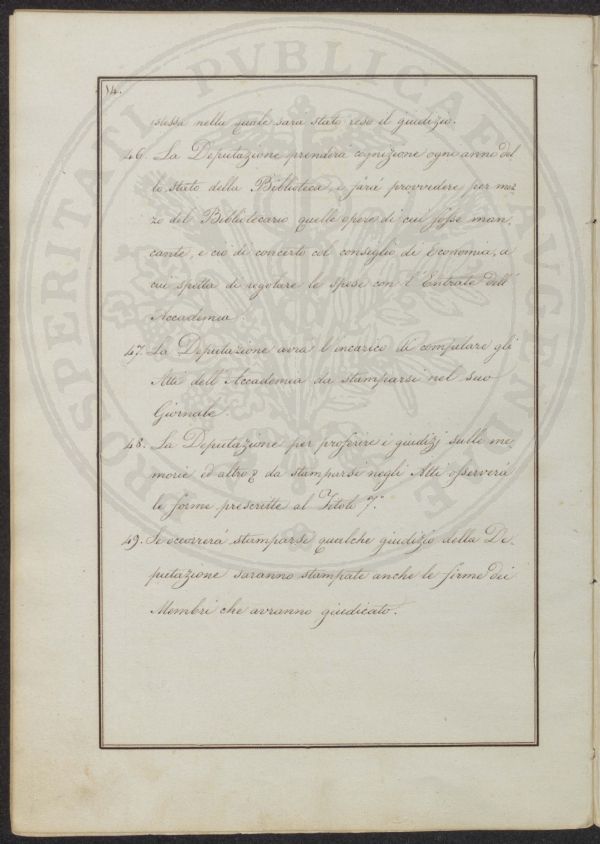 14.
stessa nella quale sarà stato reso il giudizio.
46. La Deputazione prenderà cognizione ogni anno del
lo stato della Biblioteca, e farà provvedere per mez
zo del Bibliotecario quelle opere di cui fosse man,
cante, e ciò di concerto col consiglio di Economia, a
cui spetta di regolare le spese con l'Entrate dell'
Accademia.
47. La Deputazione avrà l'incarico di compilare gli
Atti dell'Accademia da stamparsi nel suo
Giornale.
48. La Deputazione per proferire i giudizj sulle me,
morie ed altro da stamparsi negli Atti osserverà
le forme prescritte al Titolo 7.°
49. Se occorrerà stamparsi qualche giudizio della De,
putazione saranno stampate anche le firme dei
Membri che avranno giudicato.
PROSPERITATI PUBLICAE AUGENDAE